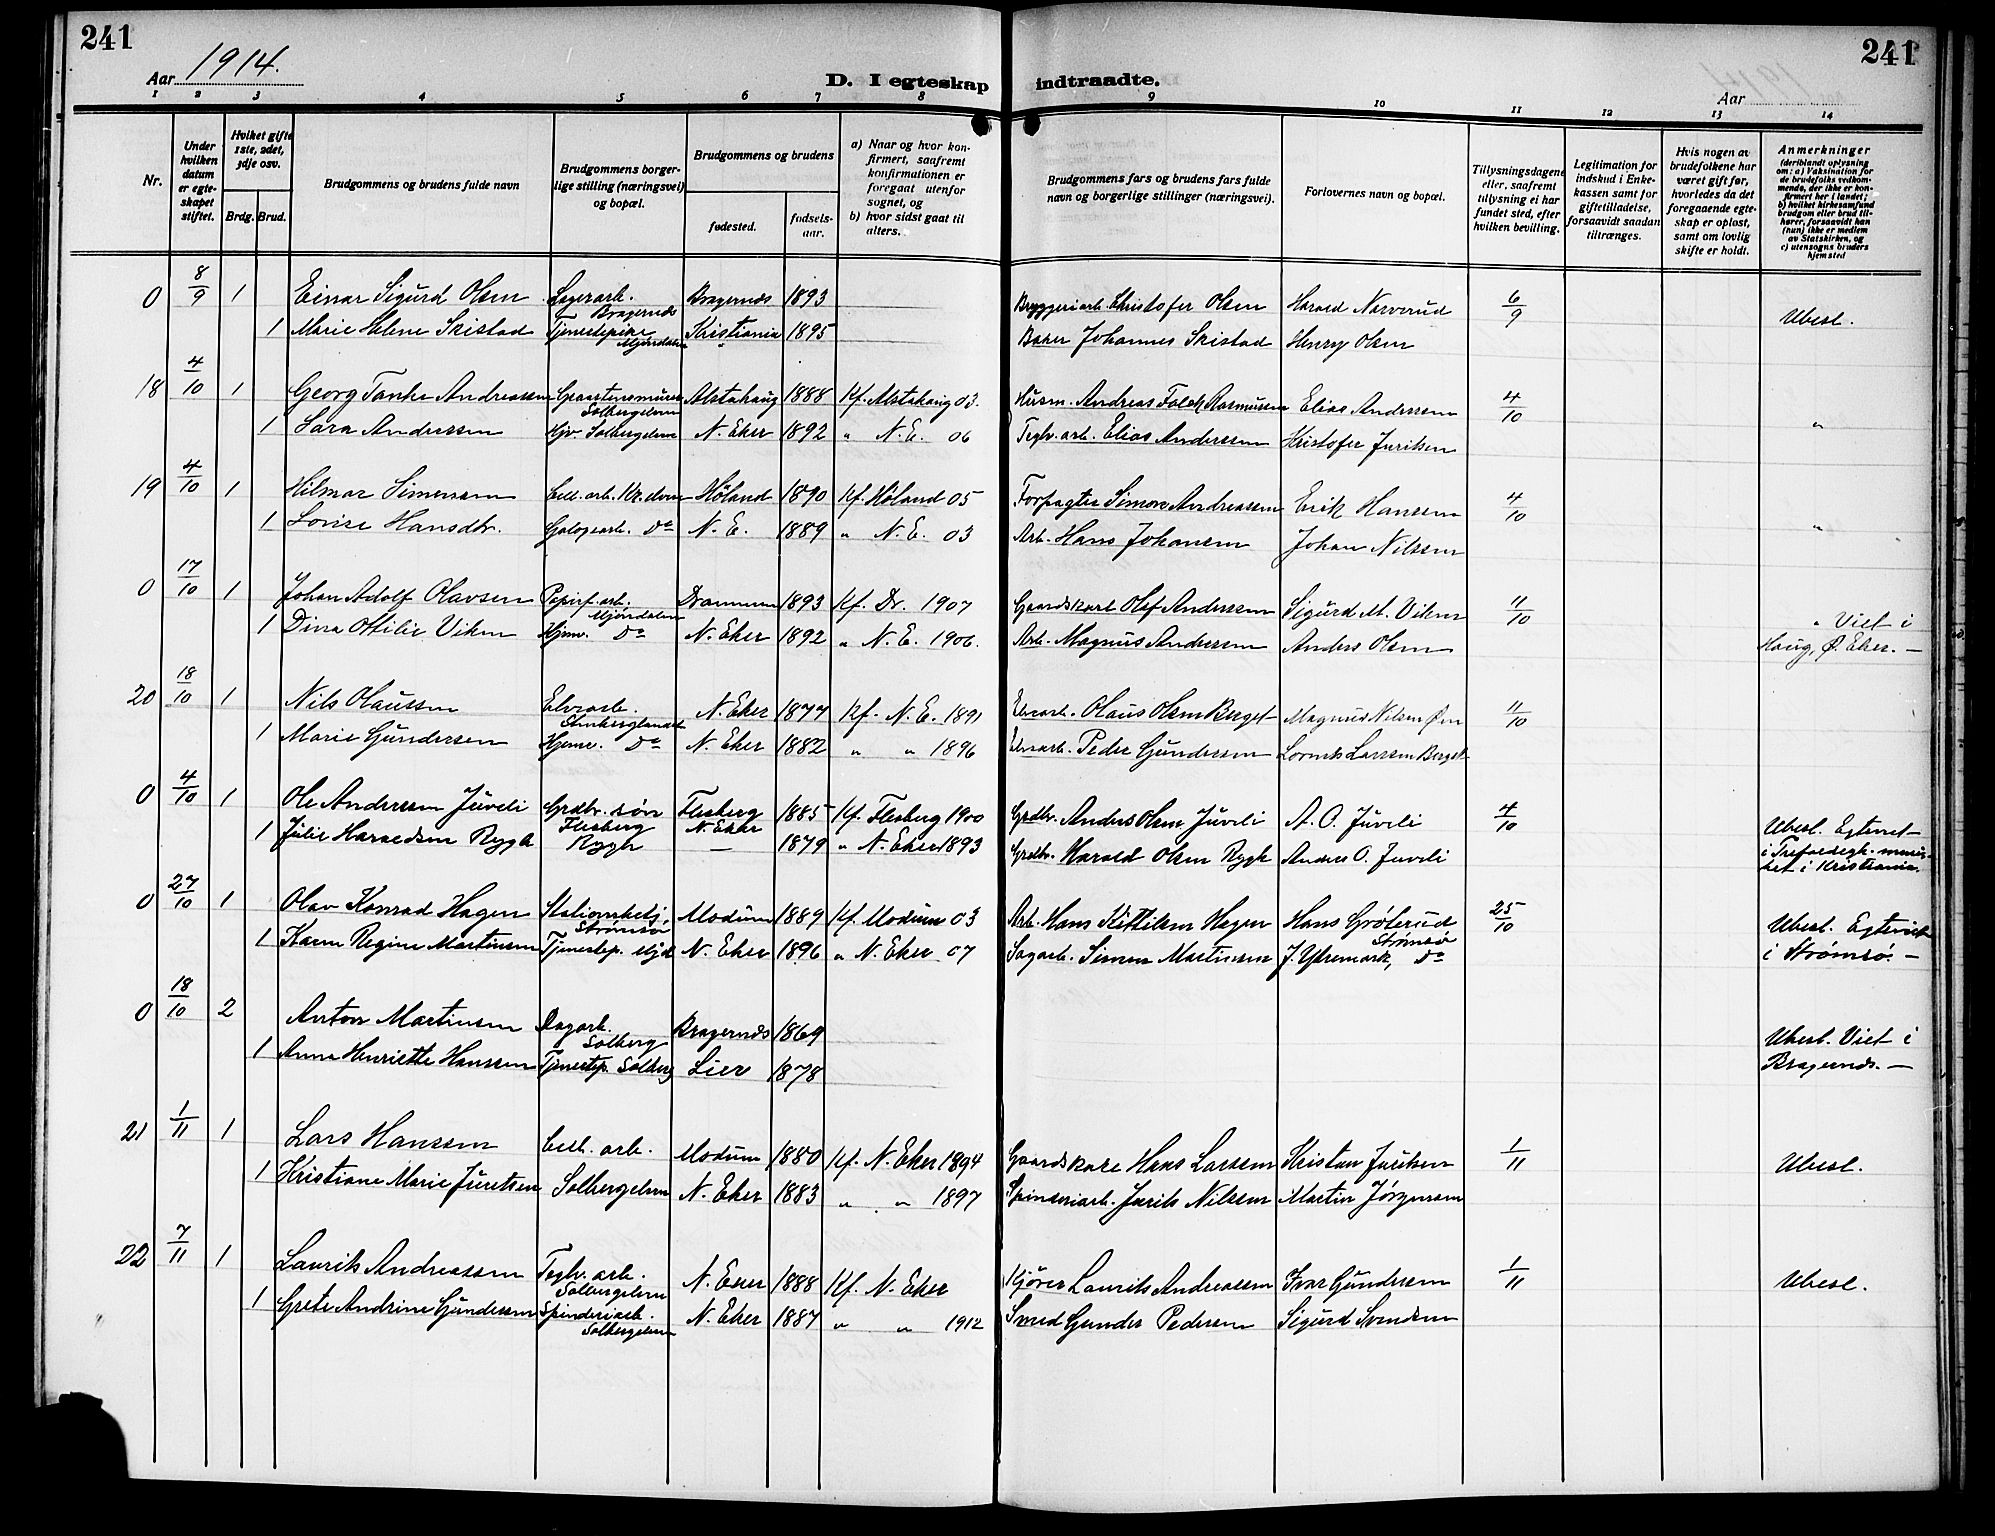 241
241
Aar 1914.
D. I egteskap indtraadte.
Aar
1 2 3 4 5 6 7 8 9 10 11 12 13 14
Nr.
Under hvilken datum er egteskapet stiftet.
Hvilket gifte 1ste, 2det, 3dje osv.
Brdg. Brud.
Brudgommens og brudens fulde navn
Brudgommens borgerlige stilling (næringsvei) og bopæl.
Brudgommens og brudens
fødested.
fødselsaar.
a) Naar og hvor konfirmert, saafremt konfirmationen er foregaat utenfor sognet, og
b) hvor sidst gaat til alters.
Brudgommens fars og brudens fars fulde navn og borgerlige stillinger (næringsvei).
Forlovernes navn og bopæl.
Tillysningsdagene eller, saafremt tillysning ei har fundet sted, efter hvilken bevilling.
Legitimation for indskud i Enkekassen samt for giftetilladelse, forsaavidt saadan tiltrænges.
Hvis nogen av brudefolkene har været gift før, hvorledes da det foregaaende egteskap er opløst, samt om lovlig skifte er holdt.
Anmerkninger (deriblandt oplysning om: a) Vaksination for de brudefolks vedkommende, der ikke er konfirmert her i landet; b) hvilket kirkesamfund brudgom eller brud tilhører, forsaavidt han (hun) ikke er medlem av Statskirken, og c) utensogns bruders hjemsted
0 8/9 1 Einar Sigurd Olsen Lagerarb. Bragernes Bragernes 1893 Bryggeriarb. Christofer Olsen Harald Narverud 6/9 Ubesl.
1 Marie Helene Skistad Tjenestepike Mjøndalen Kristiania 1895 Baker Johannes Skistad Henry Olsen
18 4/10 1 Georg Tanke Andreassen Graastensmurer Solbergelven Alstahaug 1888 Kf. Alstahaug 03. Husm. Andreas Falch Rasmussen Elias Anderssen 4/10 "
1 Sara Anderssen Hjv. Solbergelven N. Eker 1892 " N.E. 06 Teglv. arb. Elias Anderssen Kristofer Juriksen
19 4/10 1 Hilmar Simensen Cell. arb. Høland 1890 Kf. Høland 05 Forpagter Simon Andreassen Erik Hansen 4/10 "
1 Lovise Hansdtr. Do N.E. 1889 " N.E. 03 Arb. Hans Johansen Johan Nilssen
0 17/10 1 Johan Adolf Olavsen Papirf. arb. Mjøndalen Drammen 1893 Kf. Dr. 1907 Gaardskarl Olaf Anderssen Sigurd M. Viken 11/10 " Viet i
1 Dina Otilie Viken Hjemv. Do N. Eker 1892 " N.E. 1906. Arb. Magnus Anderssen Anders Olsen Haug, Ø. Eker. —
20 18/10 1 Nils Olaussen Elvearb. Stenberglandet N. Eker 1877 Kf. N.E. 1891 Elvearb. Olaus Olsen Berget Magnus Nilsen Øen 11/10
1 Marie Gundersen Hjemv. Do N. Eker 1882 " " 1896 Elvearb. Peder Gunderssen Lorents Larssen Berget
0 4/10 1 Ole Anderssen Juveli Grdbr. søn Flesberg Flesberg 1885 Kf. Flesberg 1900 Grdbr. Anders Olsen Juveli A. O. Juveli 4/10 Ubesl. Egteviet
1 Julie Haraldsen Rygh Rygh N. Eker — 1879 " N. Eker 1893 Grdbr. Harald Olsen Rygh Andres O. Juveli i Trefoldegh. menighet i Kristiania.
0 27/10 1 Olav Konrad Hagen Stationsbetj. Strømsø Modum 1889 Kf. Modum 03 Arb. Hans Kittilsen Hagen Hans Grøterud Strømsø 25/10 Ubesl. Egteviet
1 Karen Regine Martinsen Tjenestep. Mjd. N. Eker 1896 " N. Eker 07 Sagarb. Simen Martinsen J. Ytremark, Do i Strømsø. —
0 18/10 2 Anton Martinsen Dagarb. Solberg Bragernes 1869 Ubesl. Viet i
1 Anna Henriette Hanssen Tjenestep. Solberg Lier 1878 Bragernes. —
21 1/11 1 Lars Hanssen Cell. arb. Modum 1880 Kf. N. Eker 1894 Gaardskarl Hans Larssen Kristian Juriksen 1/11 Ubesl.
1 Kristiane Marie Juretsen Solbergelven N. Eker 1883 " " 1897 Spinneriarb. Jurik Nilssen Martin Jørgensen
22 7/11 1 Laurits Andreassen Teglv. arb. Solbergelven N. Eker 1888 Kf. N. Eker Kjører Laurits Andreassen Ivar Gundersen 1/11 Ubesl.
1 Grete Andrine Gunderssen Spinderiarb. Solbergelven N. Eker 1887 " " 1912 Smed Gunder Pedersen Sigurd Svendsen